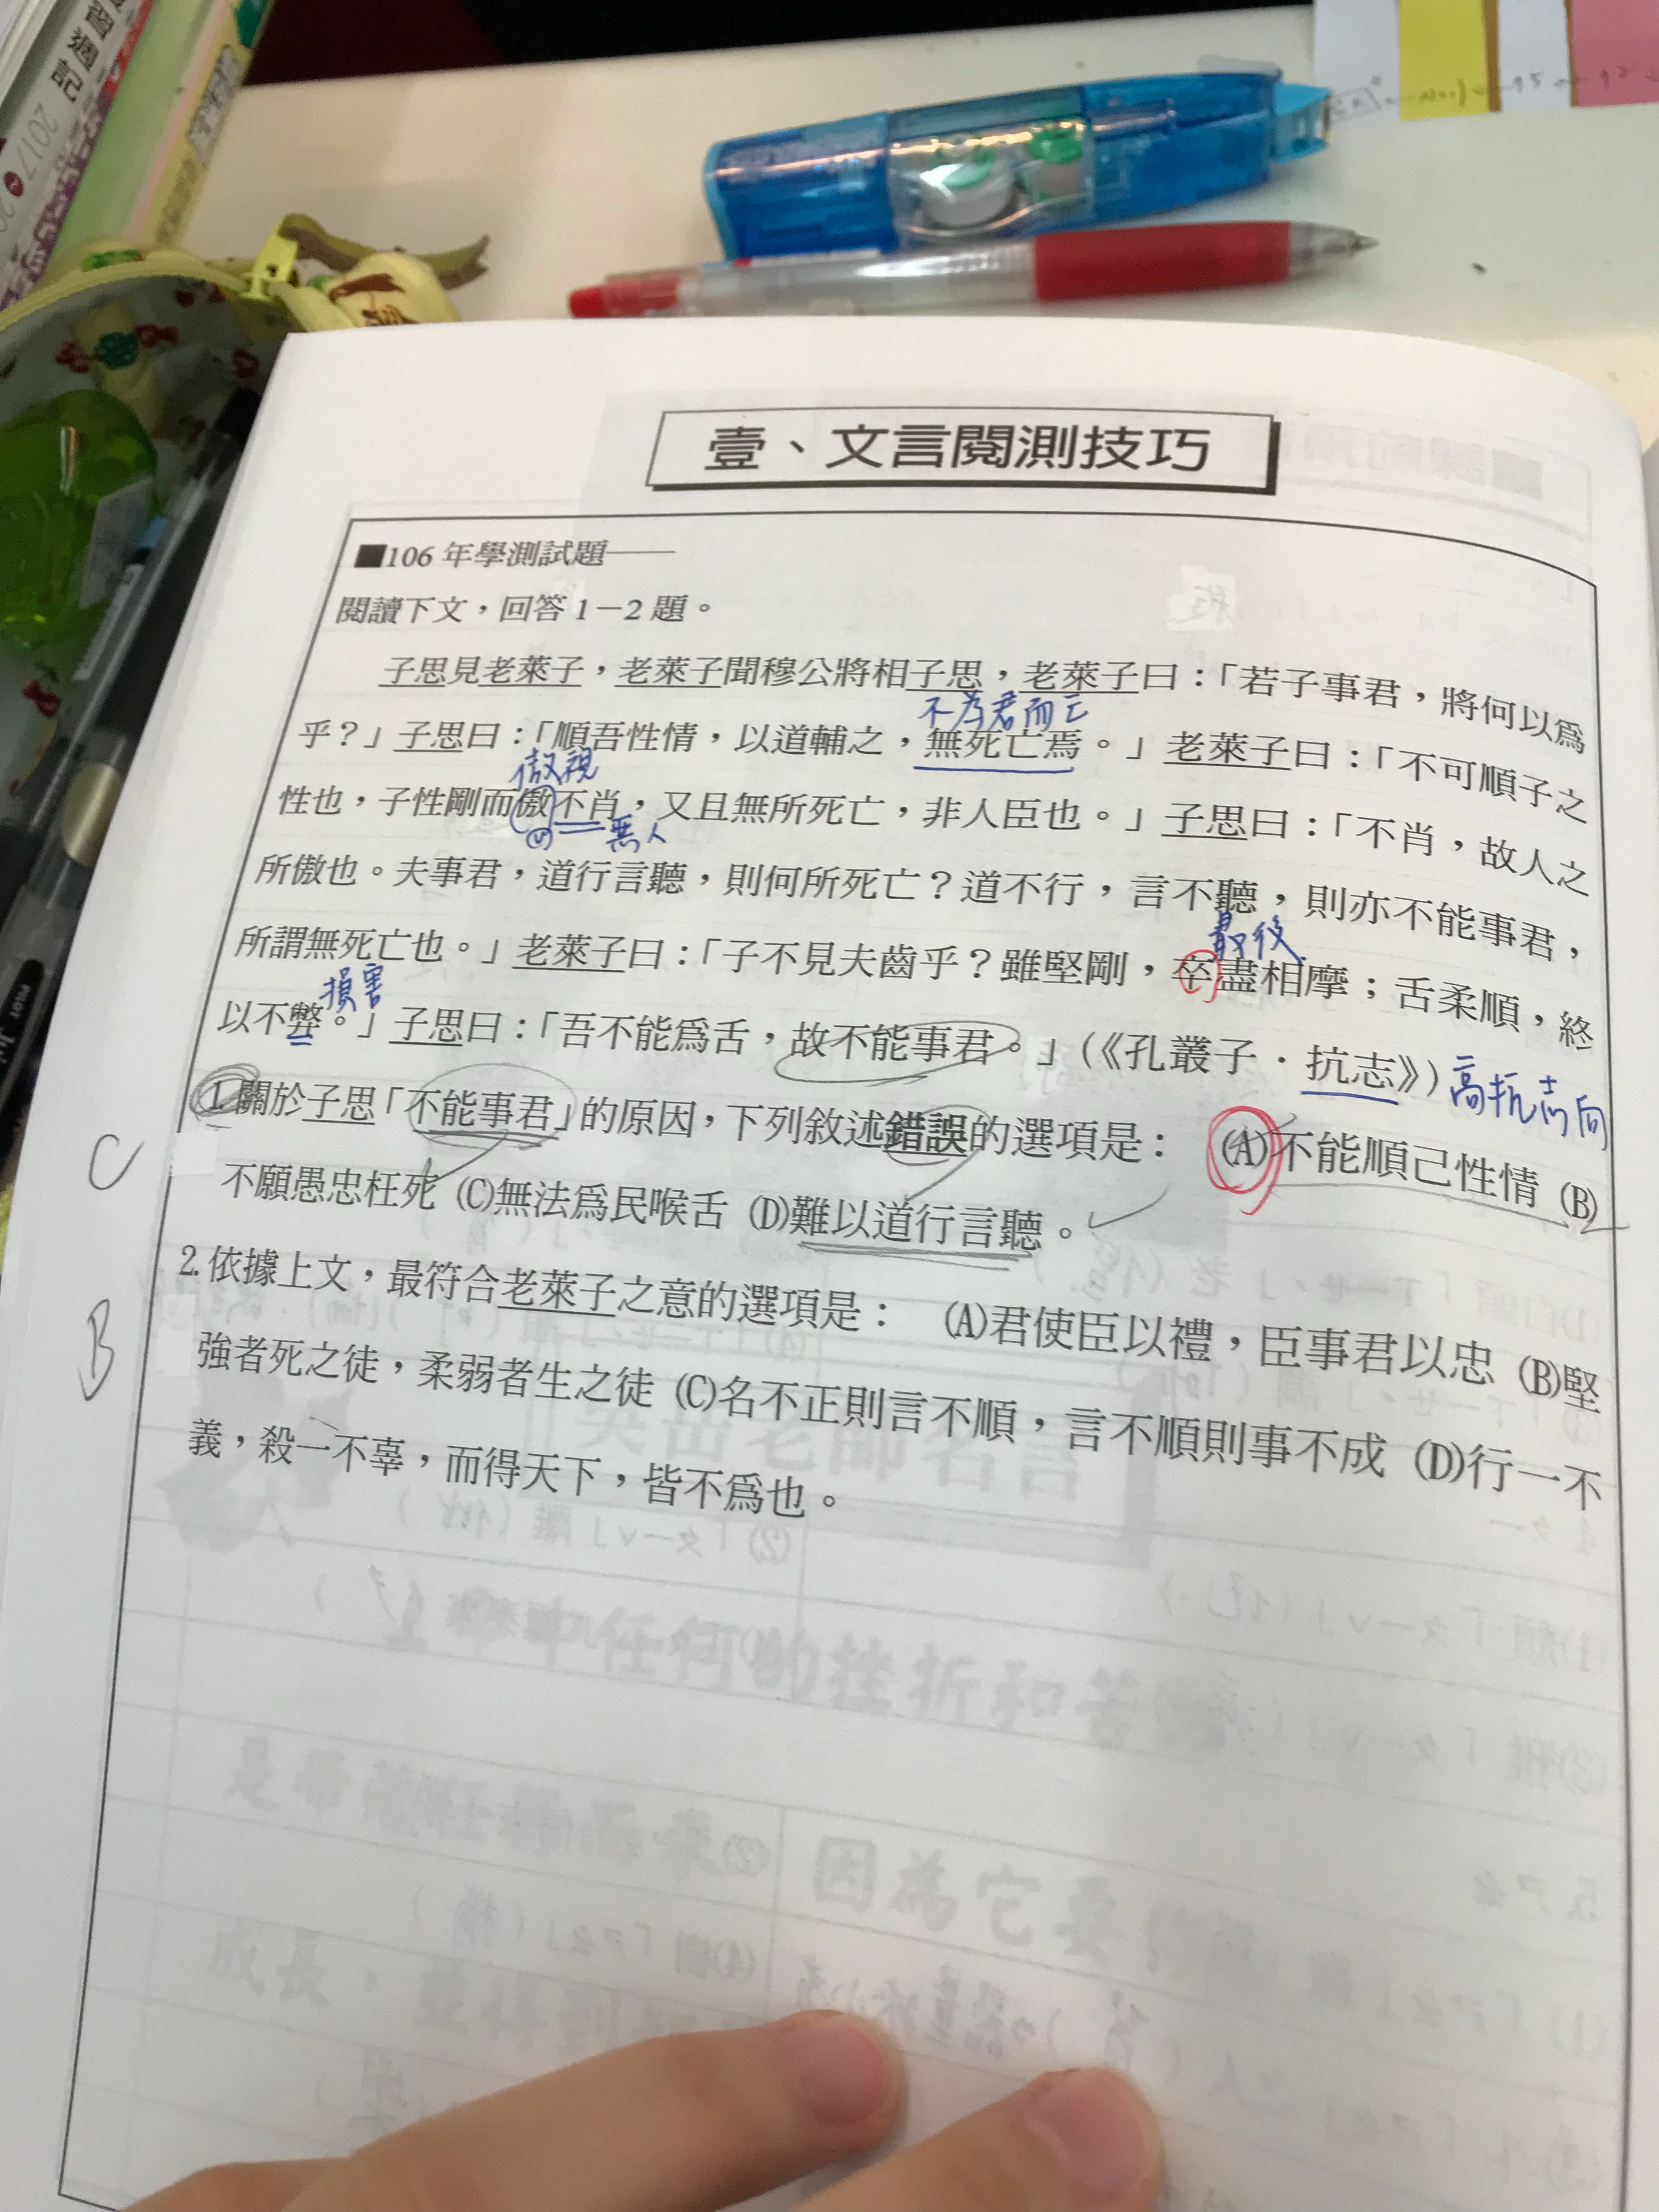 週記
2017
壹、文言閱測技巧
■106 年學測試題──
閱讀下文，回答 1－2 題。
子思見老萊子，老萊子聞穆公將相子思，老萊子曰：「若子事君，將何以爲
不為君而亡
乎？」子思曰：「順吾性情，以道輔之，無死亡焉。」老萊子曰：「不可順子之
傲視
性也，子性剛而傲不肖，又且無所死亡，非人臣也。」子思曰：「不肖，故人之
(v) 無人
所傲也。夫事君，道行言聽，則何所死亡？道不行，言不聽，則亦不能事君，
最後
所謂無死亡也。」老萊子曰：「子不見夫齒乎？雖堅剛，卒盡相摩；舌柔順，終
損害
以不弊。」子思曰：「吾不能爲舌，故不能事君。」(《孔叢子．抗志》) 高抗志向
C
1.關於子思「不能事君」的原因，下列敘述錯誤的選項是： (A)不能順己性情 (B)
不願愚忠枉死 (C)無法爲民喉舌 (D)難以道行言聽。
B
2.依據上文，最符合老萊子之意的選項是： (A)君使臣以禮，臣事君以忠 (B)堅
強者死之徒，柔弱者生之徒 (C)名不正則言不順，言不順則事不成 (D)行一不
義，殺一不辜，而得天下，皆不爲也。